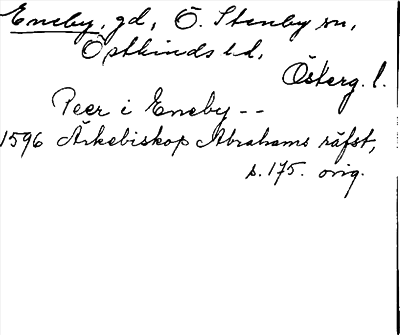 Eneby, gd, Ö. Stenby sn,
Östkinds hd,
Österg. l.
Peer i Eneby --
1596 Ärkebiskop Abrahams räfst,
s. 175. orig.